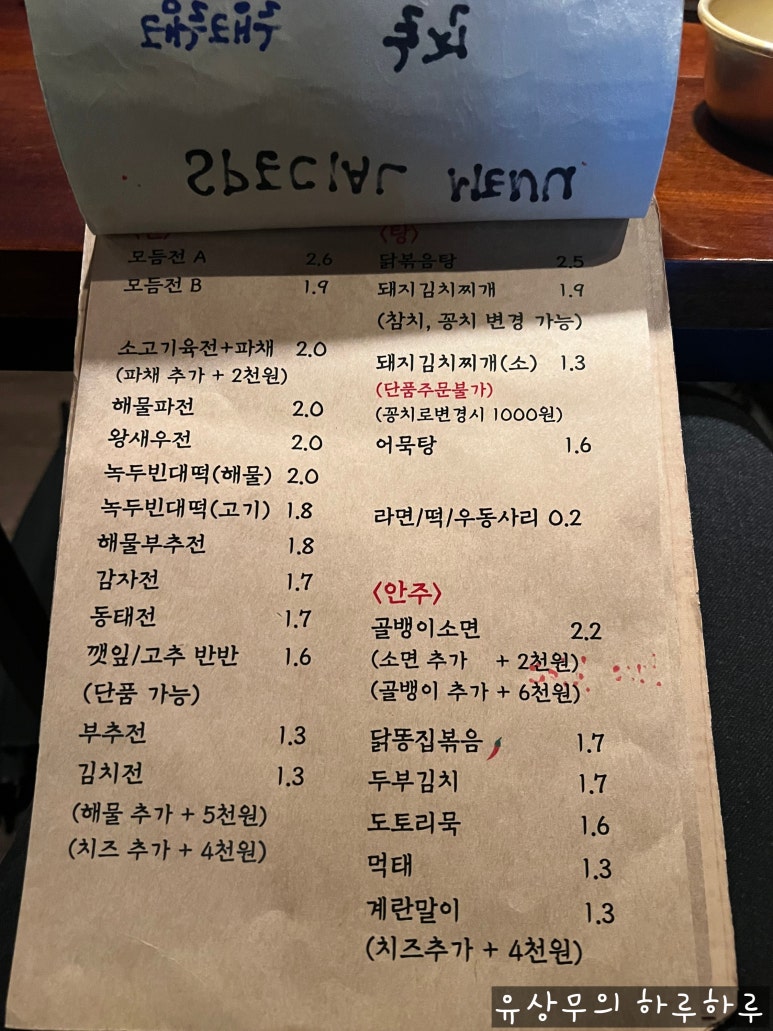 SPECIAL MENU
모듬전 A 2.6
모듬전 B 1.9
소고기육전+파채 2.0
(파채 추가 + 2천원)
해물파전 2.0
왕새우전 2.0
녹두빈대떡(해물) 2.0
녹두빈대떡(고기) 1.8
해물부추전 1.8
감자전 1.7
동태전 1.7
깻잎/고추 반반 1.6
(단품 가능)
부추전 1.3
김치전 1.3
(해물 추가 + 5천원)
(치즈 추가 + 4천원)
<탕>
닭볶음탕 2.5
돼지김치찌개 1.9
(참치, 꽁치 변경 가능)
돼지김치찌개(소) 1.3
(단품주문불가)
(꽁치로변경시 1000원)
어묵탕 1.6
라면/떡/우동사리 0.2
<안주>
골뱅이소면 2.2
(소면 추가 + 2천원)
(골뱅이 추가 + 6천원)
닭똥집볶음 1.7
두부김치 1.7
도토리묵 1.6
먹태 1.3
계란말이 1.3
(치즈추가 + 4천원)
유상무의 하루하루